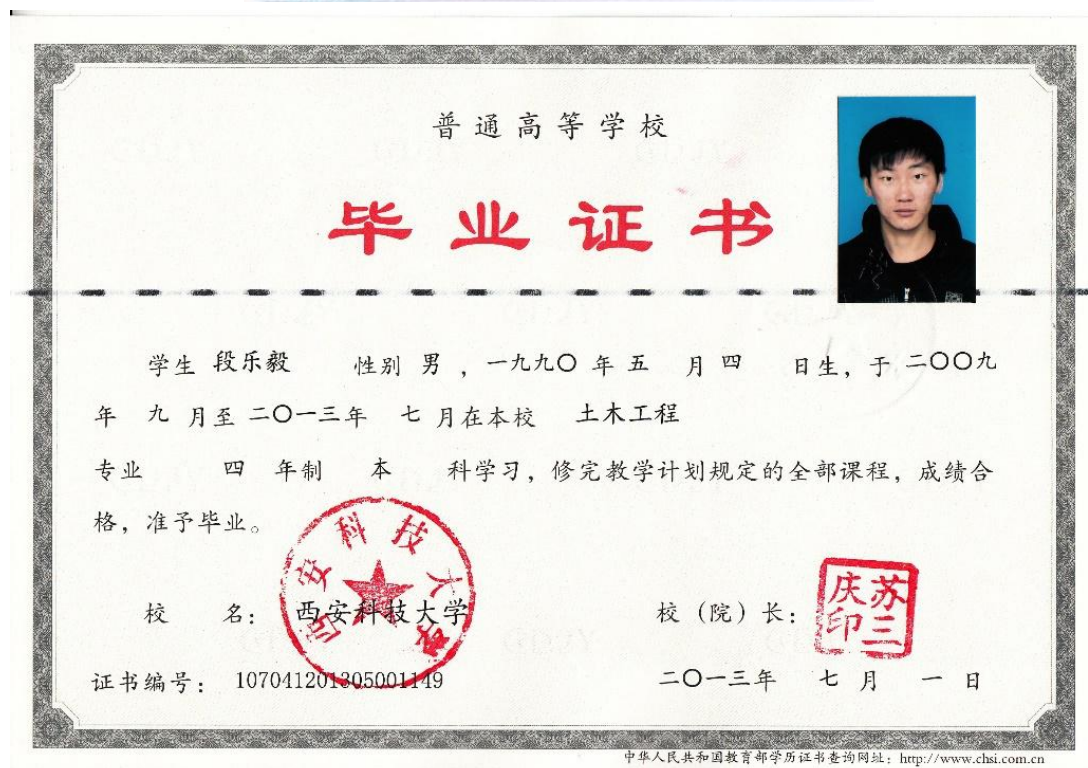 普通高等学校
毕业证书
学生 段乐毅 性别 男 ，一九九〇 年 五 月 四 日生，于 二〇〇九
年 九 月至 二〇一三年 七 月在本校 土木工程
专业 四 年制 本 科学习，修完教学计划规定的全部课程，成绩合
格，准予毕业。
西安科技大学
校 名： 西安科技大学
校（院）长：
苏三庆印
证书编号： 107041201305001149
二〇一三年 七 月 一 日
中华人民共和国教育部学历证书查询网址：http://www.chsi.com.cn